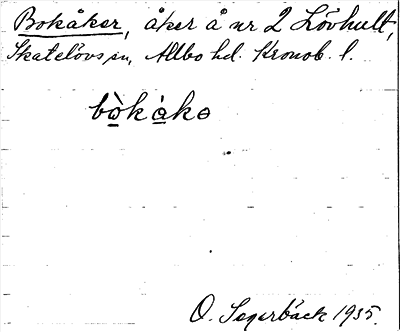 Bokåker, åker å nr 2 Lövhult,
Skatelövs sn, Allbo hd. Kronob. l.
bò̱kà̱kɘ
O. Segerbäck 1935